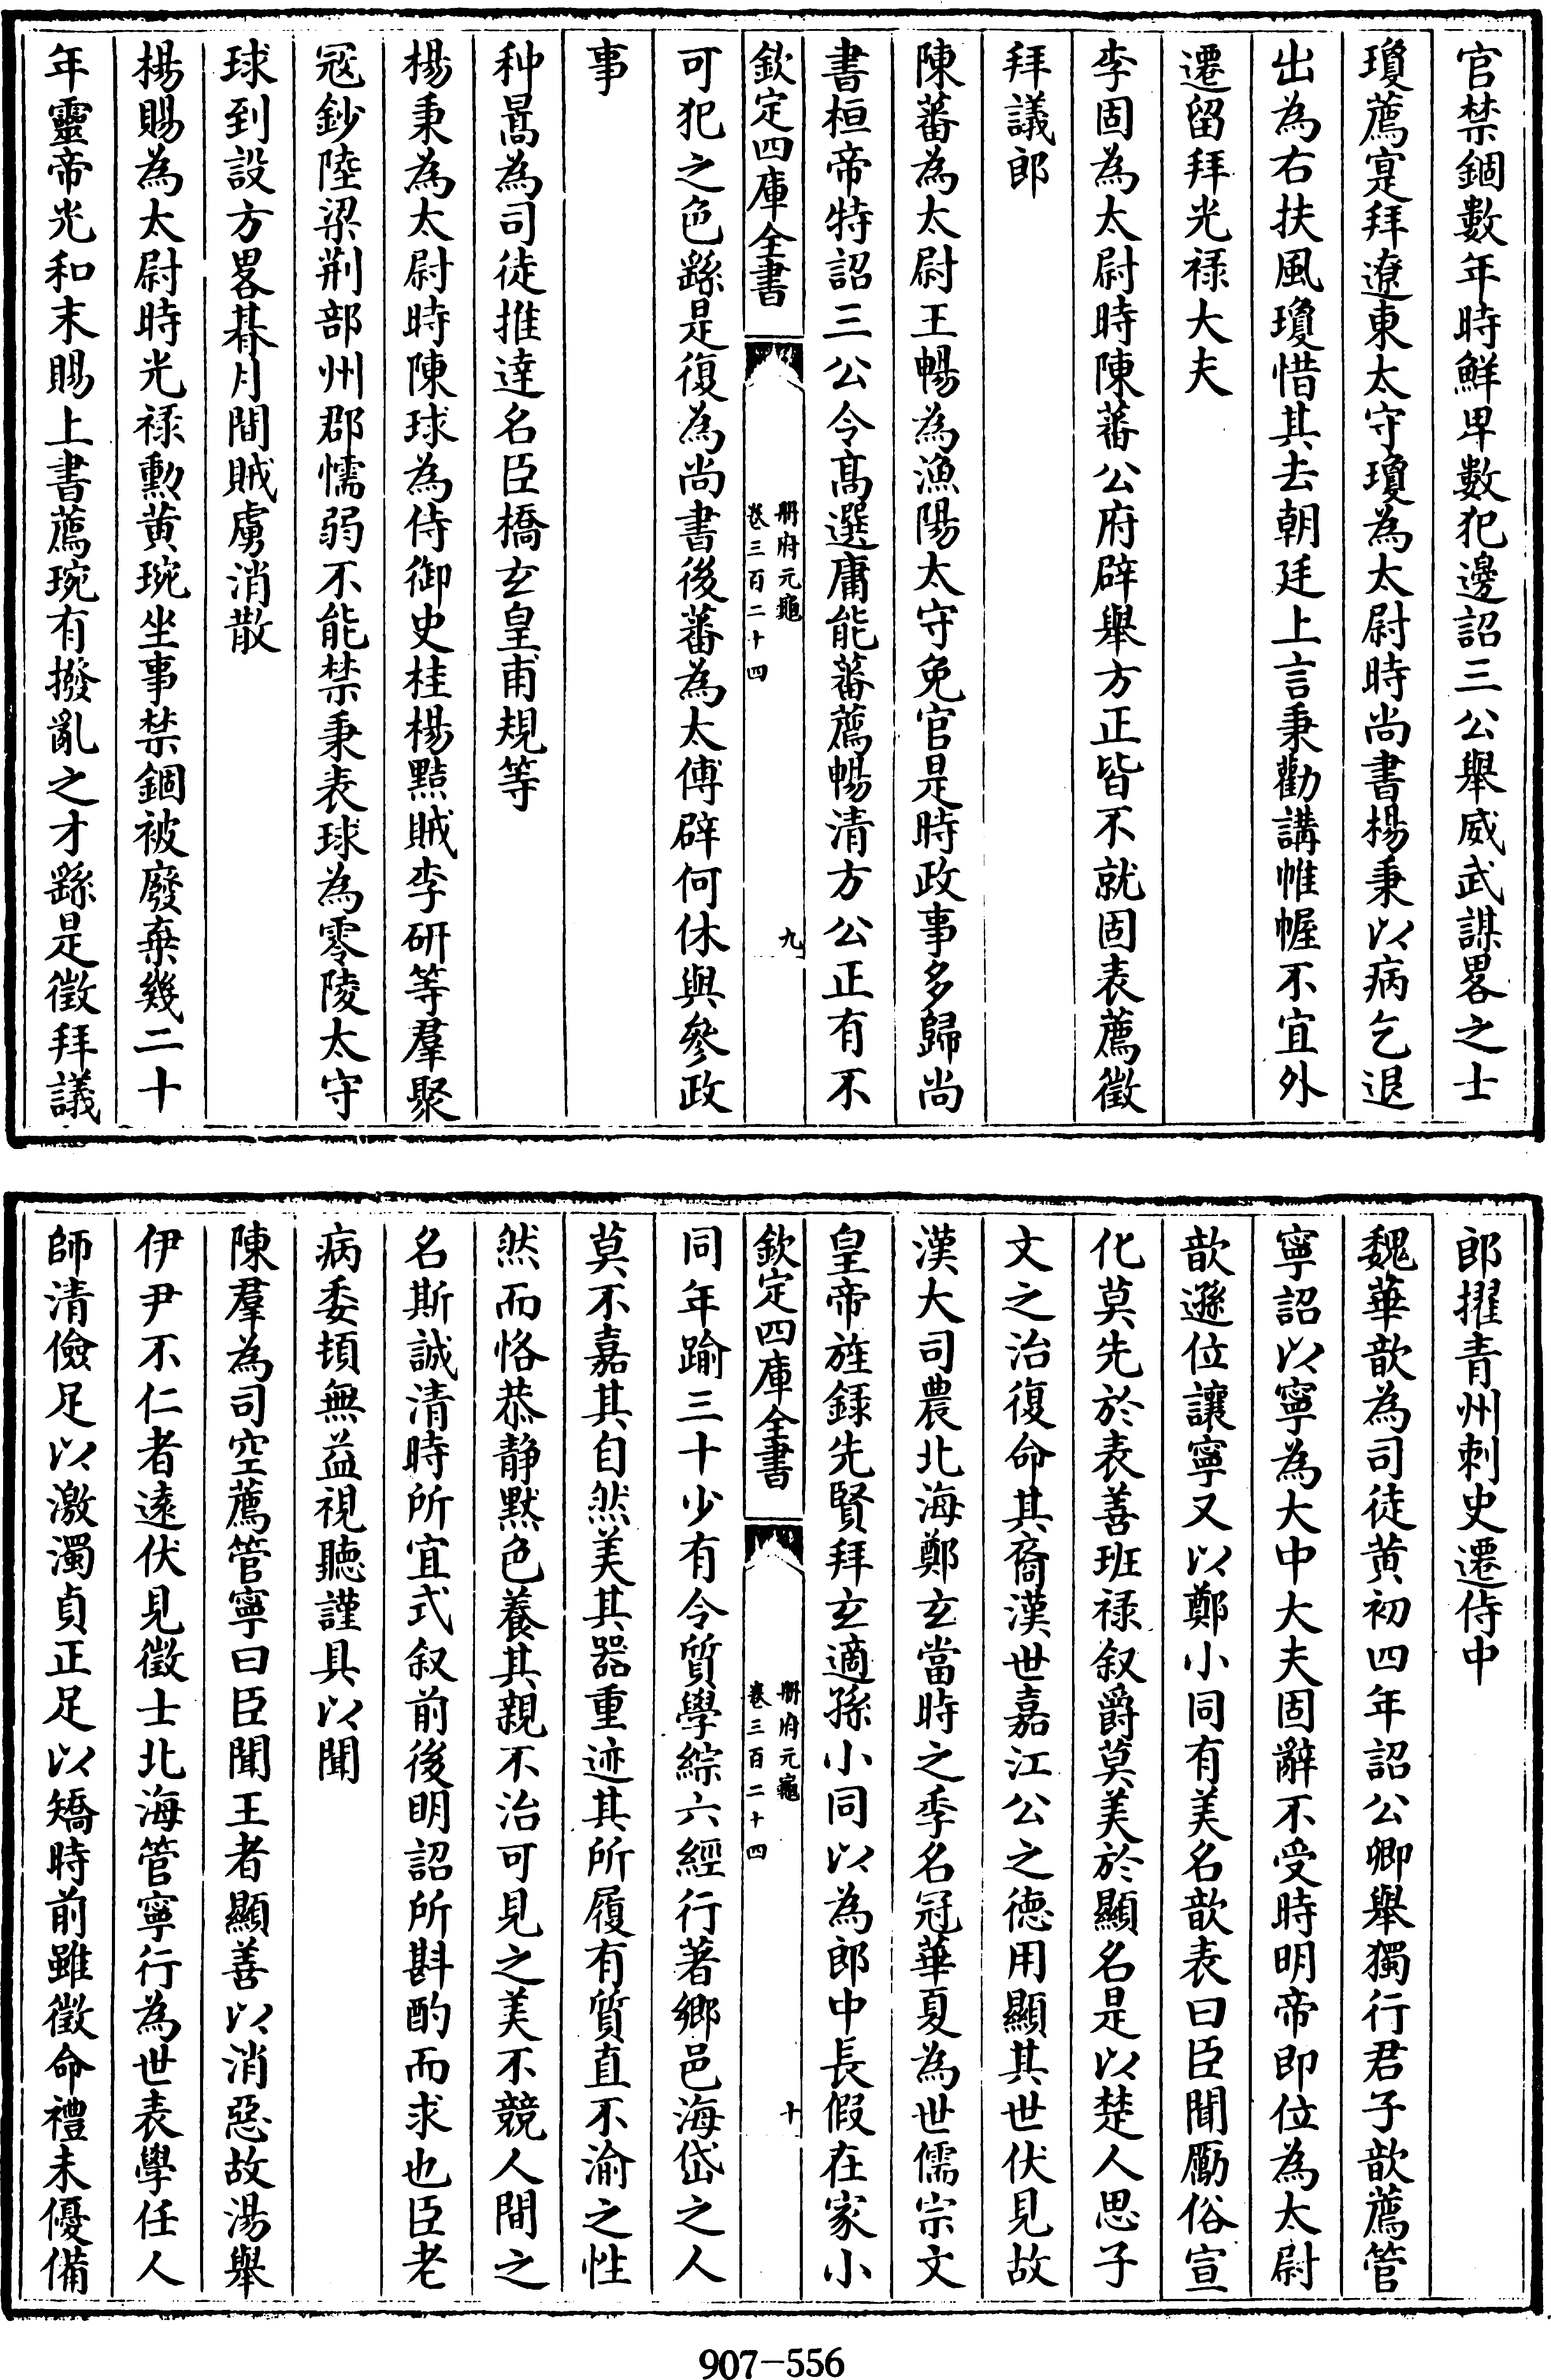 官禁錮數年時鮮卑數犯邊詔三公舉威武謀畧之士
瓊薦寔拜遼東太守瓊為太尉時尚書楊秉以病乞退
出為右扶風瓊惜其去朝廷上言秉勸講帷幄不宜外
遷留拜光祿大夫
李固為太尉時陳蕃公府辟舉方正皆不就固表薦徵
拜議郎
陳蕃為太尉王暢為漁陽太守免官是時政事多歸尚
書桓帝特詔三公令髙選庸能蕃薦暢清方公正有不
欽定四庫全書
冊府元龜
卷三百二十四
九
可犯之色繇是復為尚書後蕃為太傅辟何休與參政
事
种暠為司徒推達名臣橋玄皇甫規等
楊秉為太尉時陳球為侍御史桂楊黠賊李研等羣聚
冦鈔陸梁荆部州郡懦弱不能禁秉表球為零陵太守
球到設方畧朞月間賊虜消散
楊賜為太尉時光祿勲黄琬坐事禁錮被廢棄幾二十
年靈帝光和末賜上書薦琬有撥亂之才繇是徵拜議
郎擢青州刺史遷侍中
魏華歆為司徒黄初四年詔公卿舉獨行君子歆薦管
寧詔以寧為大中大夫固辭不受時明帝即位為太尉
歆遜位讓寧又以鄭小同有美名歆表曰臣聞勵俗宣
化莫先於表善班祿叙爵莫美於顯名是以楚人思子
文之治復命其裔漢世嘉江公之德用顯其世伏見故
漢大司農北海鄭玄當時之季名冠華夏為世儒宗文
皇帝旌録先賢拜玄適孫小同以為郎中長假在家小
欽定四庫全書
冊府元龜
卷三百二十四
十
同年踰三十少有令質學綜六經行著鄉邑海岱之人
莫不嘉其自然美其器重迹其所履有質直不渝之性
然而恪恭静黙色養其親不治可見之美不競人間之
名斯誠清時所宜式叙前後明詔所斟酌而求也臣老
病委頓無益視聽謹具以聞
陳羣為司空薦管寧曰臣聞王者顯善以消惡故湯舉
伊尹不仁者遠伏見徵士北海管寧行為世表學任人
師清儉足以激濁貞正足以矯時前雖徵命禮未優備
907-556